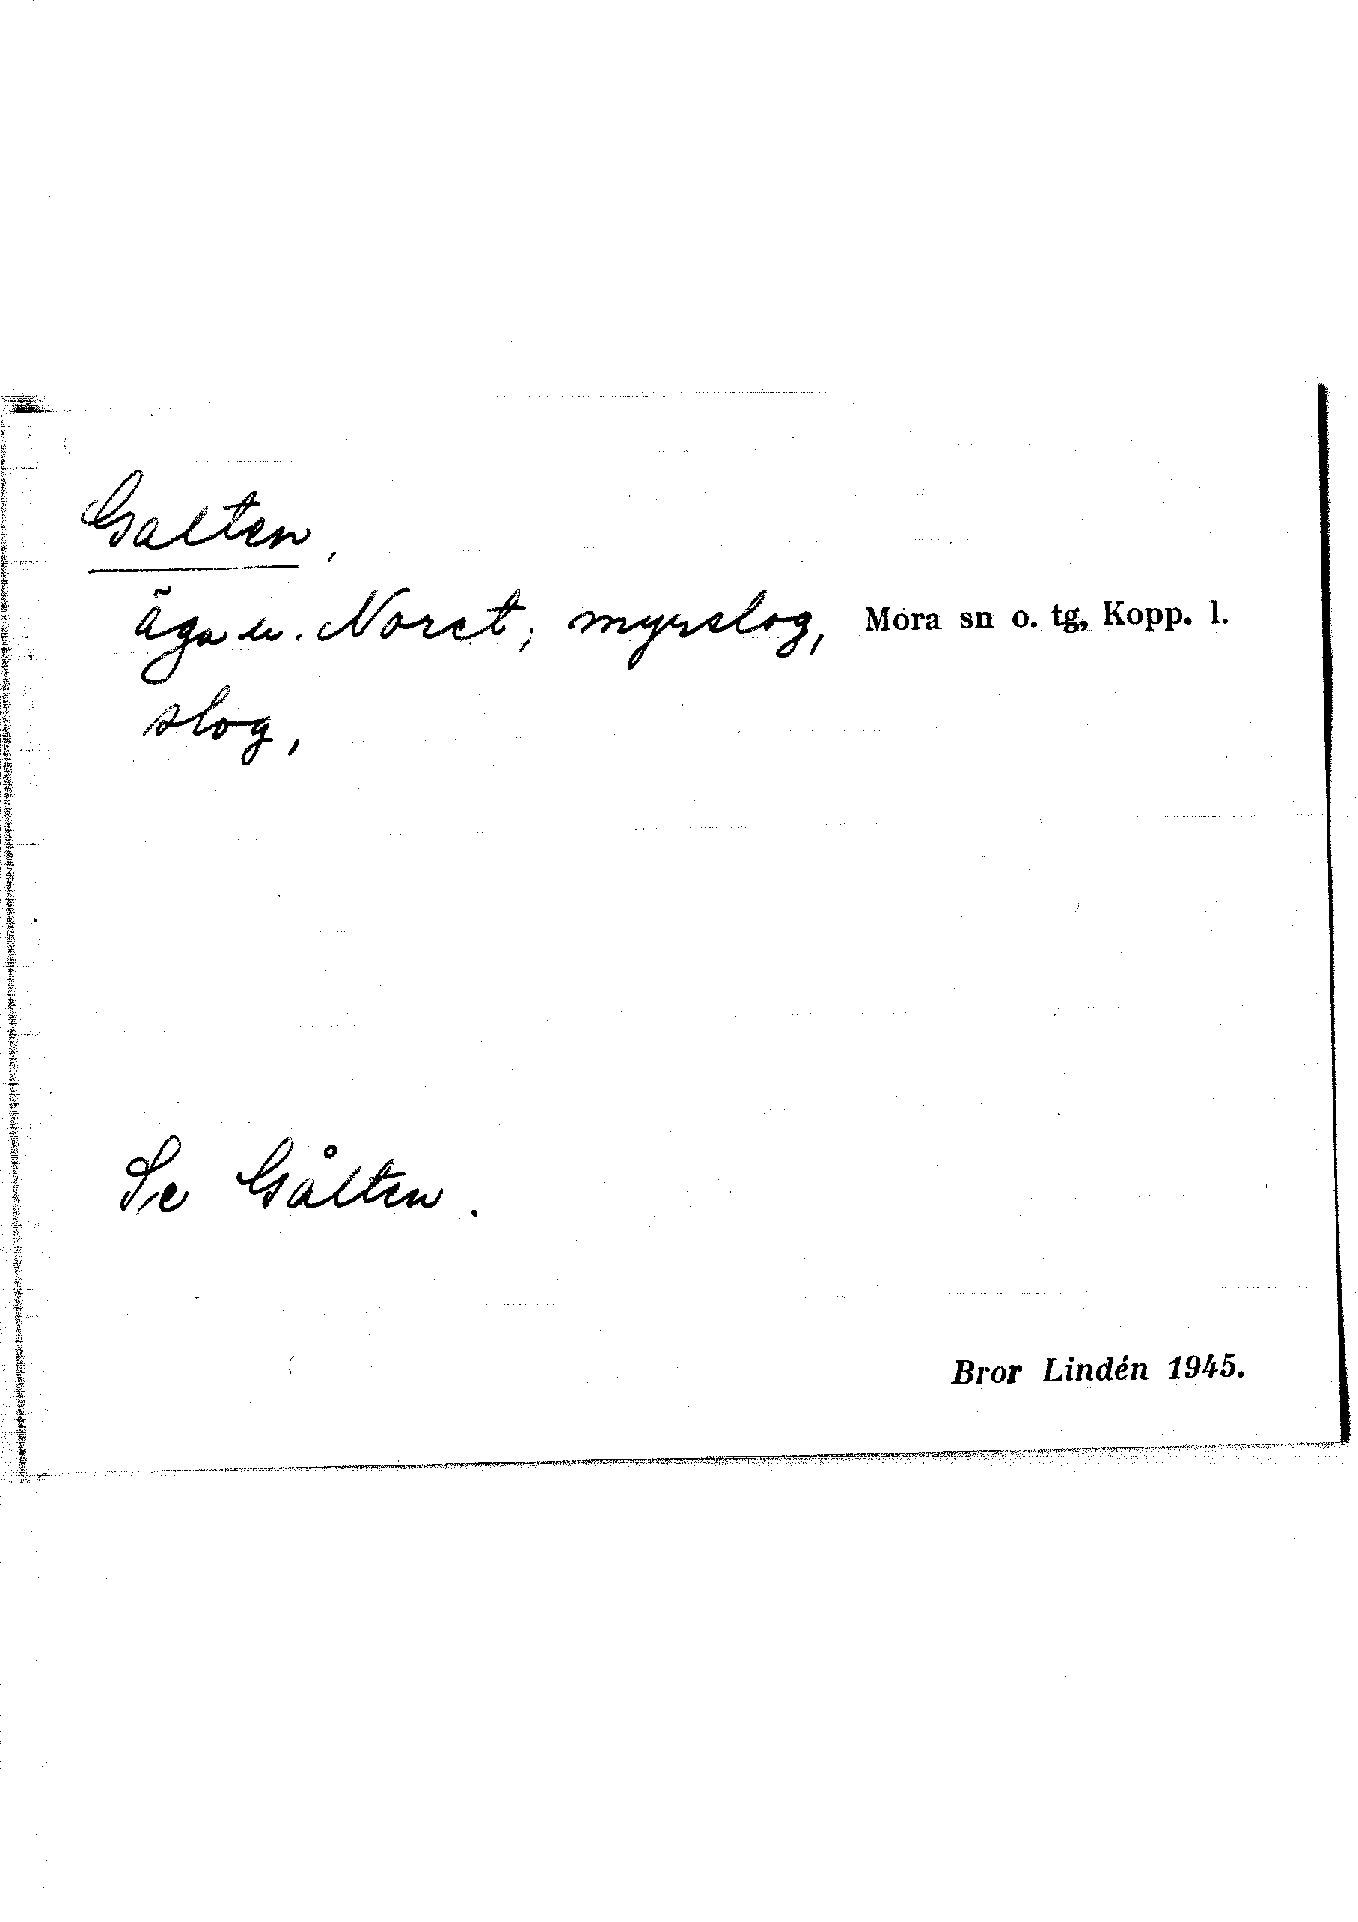 Galten,
äga u. Noret; myrslog, Mora sn o. tg, Kopp. l.
slog,
Se Gålten.
Bror Lindén 1945.